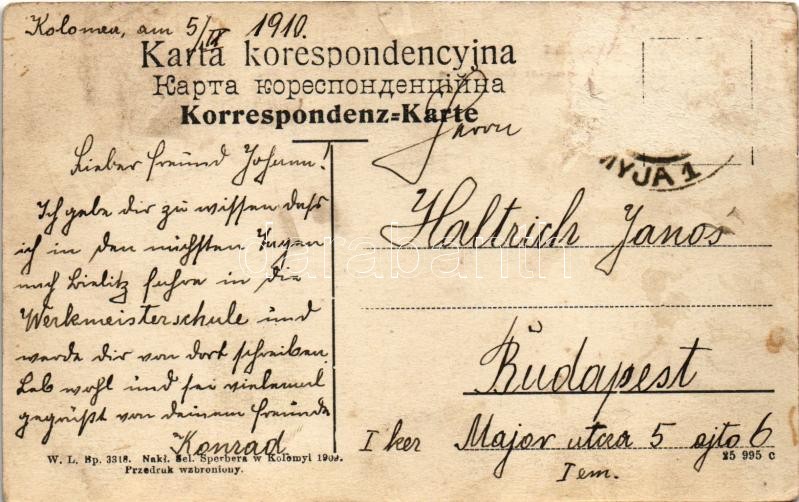 Kolomea, am 5/IX 1910.
Karta korespondencyjna
Карта кореспонденційна
Korrespondenz-Karte
Herrn
Lieber Freund Johann!
Ich gebe dir zu wissen dass
ich in den nächsten Tagen
nach Bielitz fahre in die
Werkmeisterschule und
werde dir von dort schreiben.
Leb wohl und sei vielemal
gegrüßt von deinem Freunde
Konrad
MYJA 1
Haltrich Janos
Budapest
I ker Major utcza 5 ajto 6
I em.
W. L. Bp. 3318. Nakł. Sel. Sperbera w Kołomyi 1909.
Przedruk wzbroniony.
25 995 c
darabanth